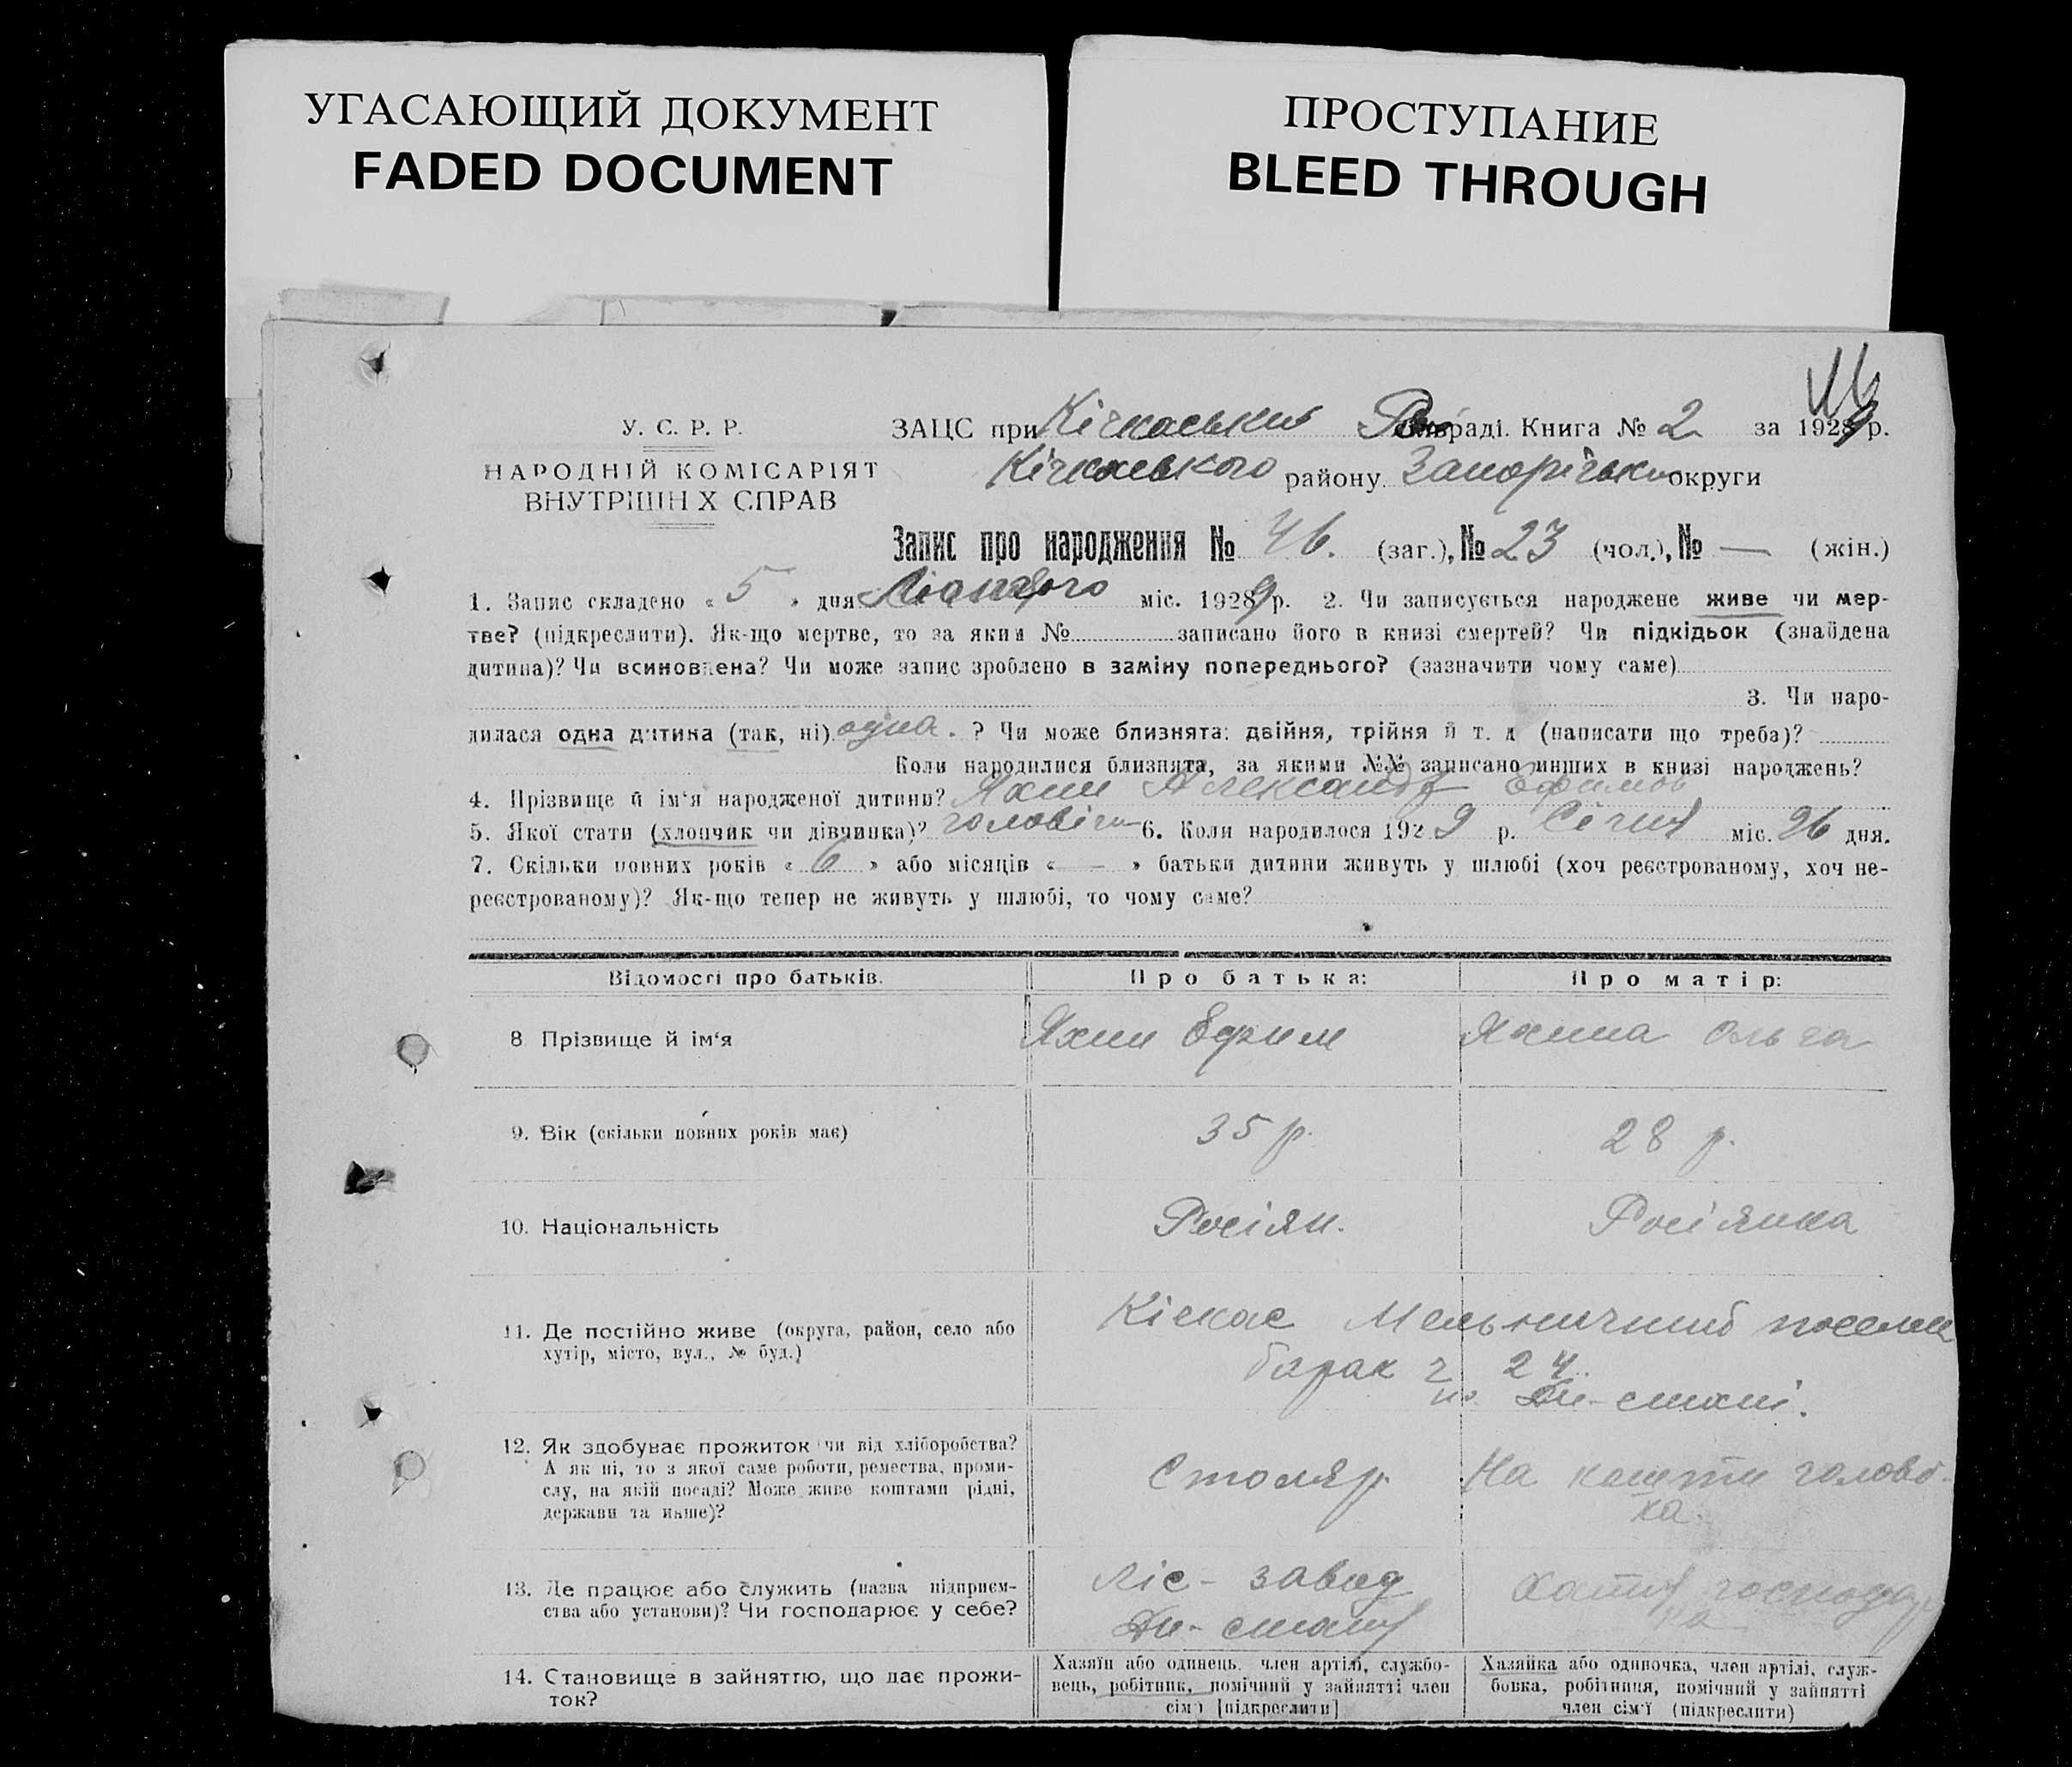 УГАСАЮЩИЙ ДОКУМЕНТ
FADED DOCUMENT
ПРОСТУПАНИЕ
BLEED THROUGH
У. С. Р. Р.
НАРОДНІЙ КОМІСАРІЯТ
ВНУТРІШН Х СПРАВ
ЗАЦС при Кічкаський раді. Книга № 2 за 1929 р.
Кічкаського району Запорізької округи
Запис про народження № 46. (заг.), № 23 (чол.), № — (жін.)
1. Запис складено « 5 » дня Лютого міс. 1929 р. 2. Чи записується народжене живе чи мер-
тве? (підкреслити). Як-що мертве, то за яким № записано його в книзі смертей? Чи підкідьок (знайдена
дитина)? Чи всиновлена? Чи може запис зроблено в заміну попереднього? (зазначити чому саме)
3. Чи наро-
дилася одна дитина (так, ні) одна. ? Чи може близнята: двійня, трійня й т. д (написати що треба)?
Коли народилися близнята, за якими №№ записано инших в книзі народжень?
4. Прізвище й ім‘я народженої дитини? Яхин Александр Ефимов
5. Якої стати (хлопчик чи дівчинка)? чоловіча 6. Коли народилося 1929 р. Січня міс. 26 дня.
7. Скільки повних років « 6 » або місяців « — » батьки дитини живуть у шлюбі (хоч реєстрованому, хоч не-
реєстрованому)? Як-що тепер не живуть у шлюбі, то чому саме?
Відомості про батьків. Про батька: Про матір:
8 Прізвище й ім‘я Яхин Ефим Яхина Ольга
9. Вік (скільки повних років має) 35 р. 28 р.
10. Національність Росіян. Росіянка
11. Де постійно живе (округа, район, село або
хутір, місто, вул., № буд.)
Кічкас Мельничний поселок
барак 24.
Дн-стані.
12. Як здобуває прожиток чи від хліборобства?
А як ні, то з якої саме роботи, ремества, проми-
слу, на якій посаді? Може живе коштами рідні,
держави та инше)?
Столяр. На кошти чолові-
ка.
13. Де працює або служить (назва підприєм-
ства або установи)? Чи господарює у себе?
Ліс-завод
Дн-стану
Хатня господар
ка
14. Становище в зайняттю, що дає прожи-
ток?
Хазяїн або одинець, член артілі, службо-
вець, робітник, помічний у зайнятті член
сім‘ї [підкреслити]
Хазяйка або одиночка, член артілі, служ-
бовка, робітниця, помічний у зайнятті
член сім‘ї (підкреслити)